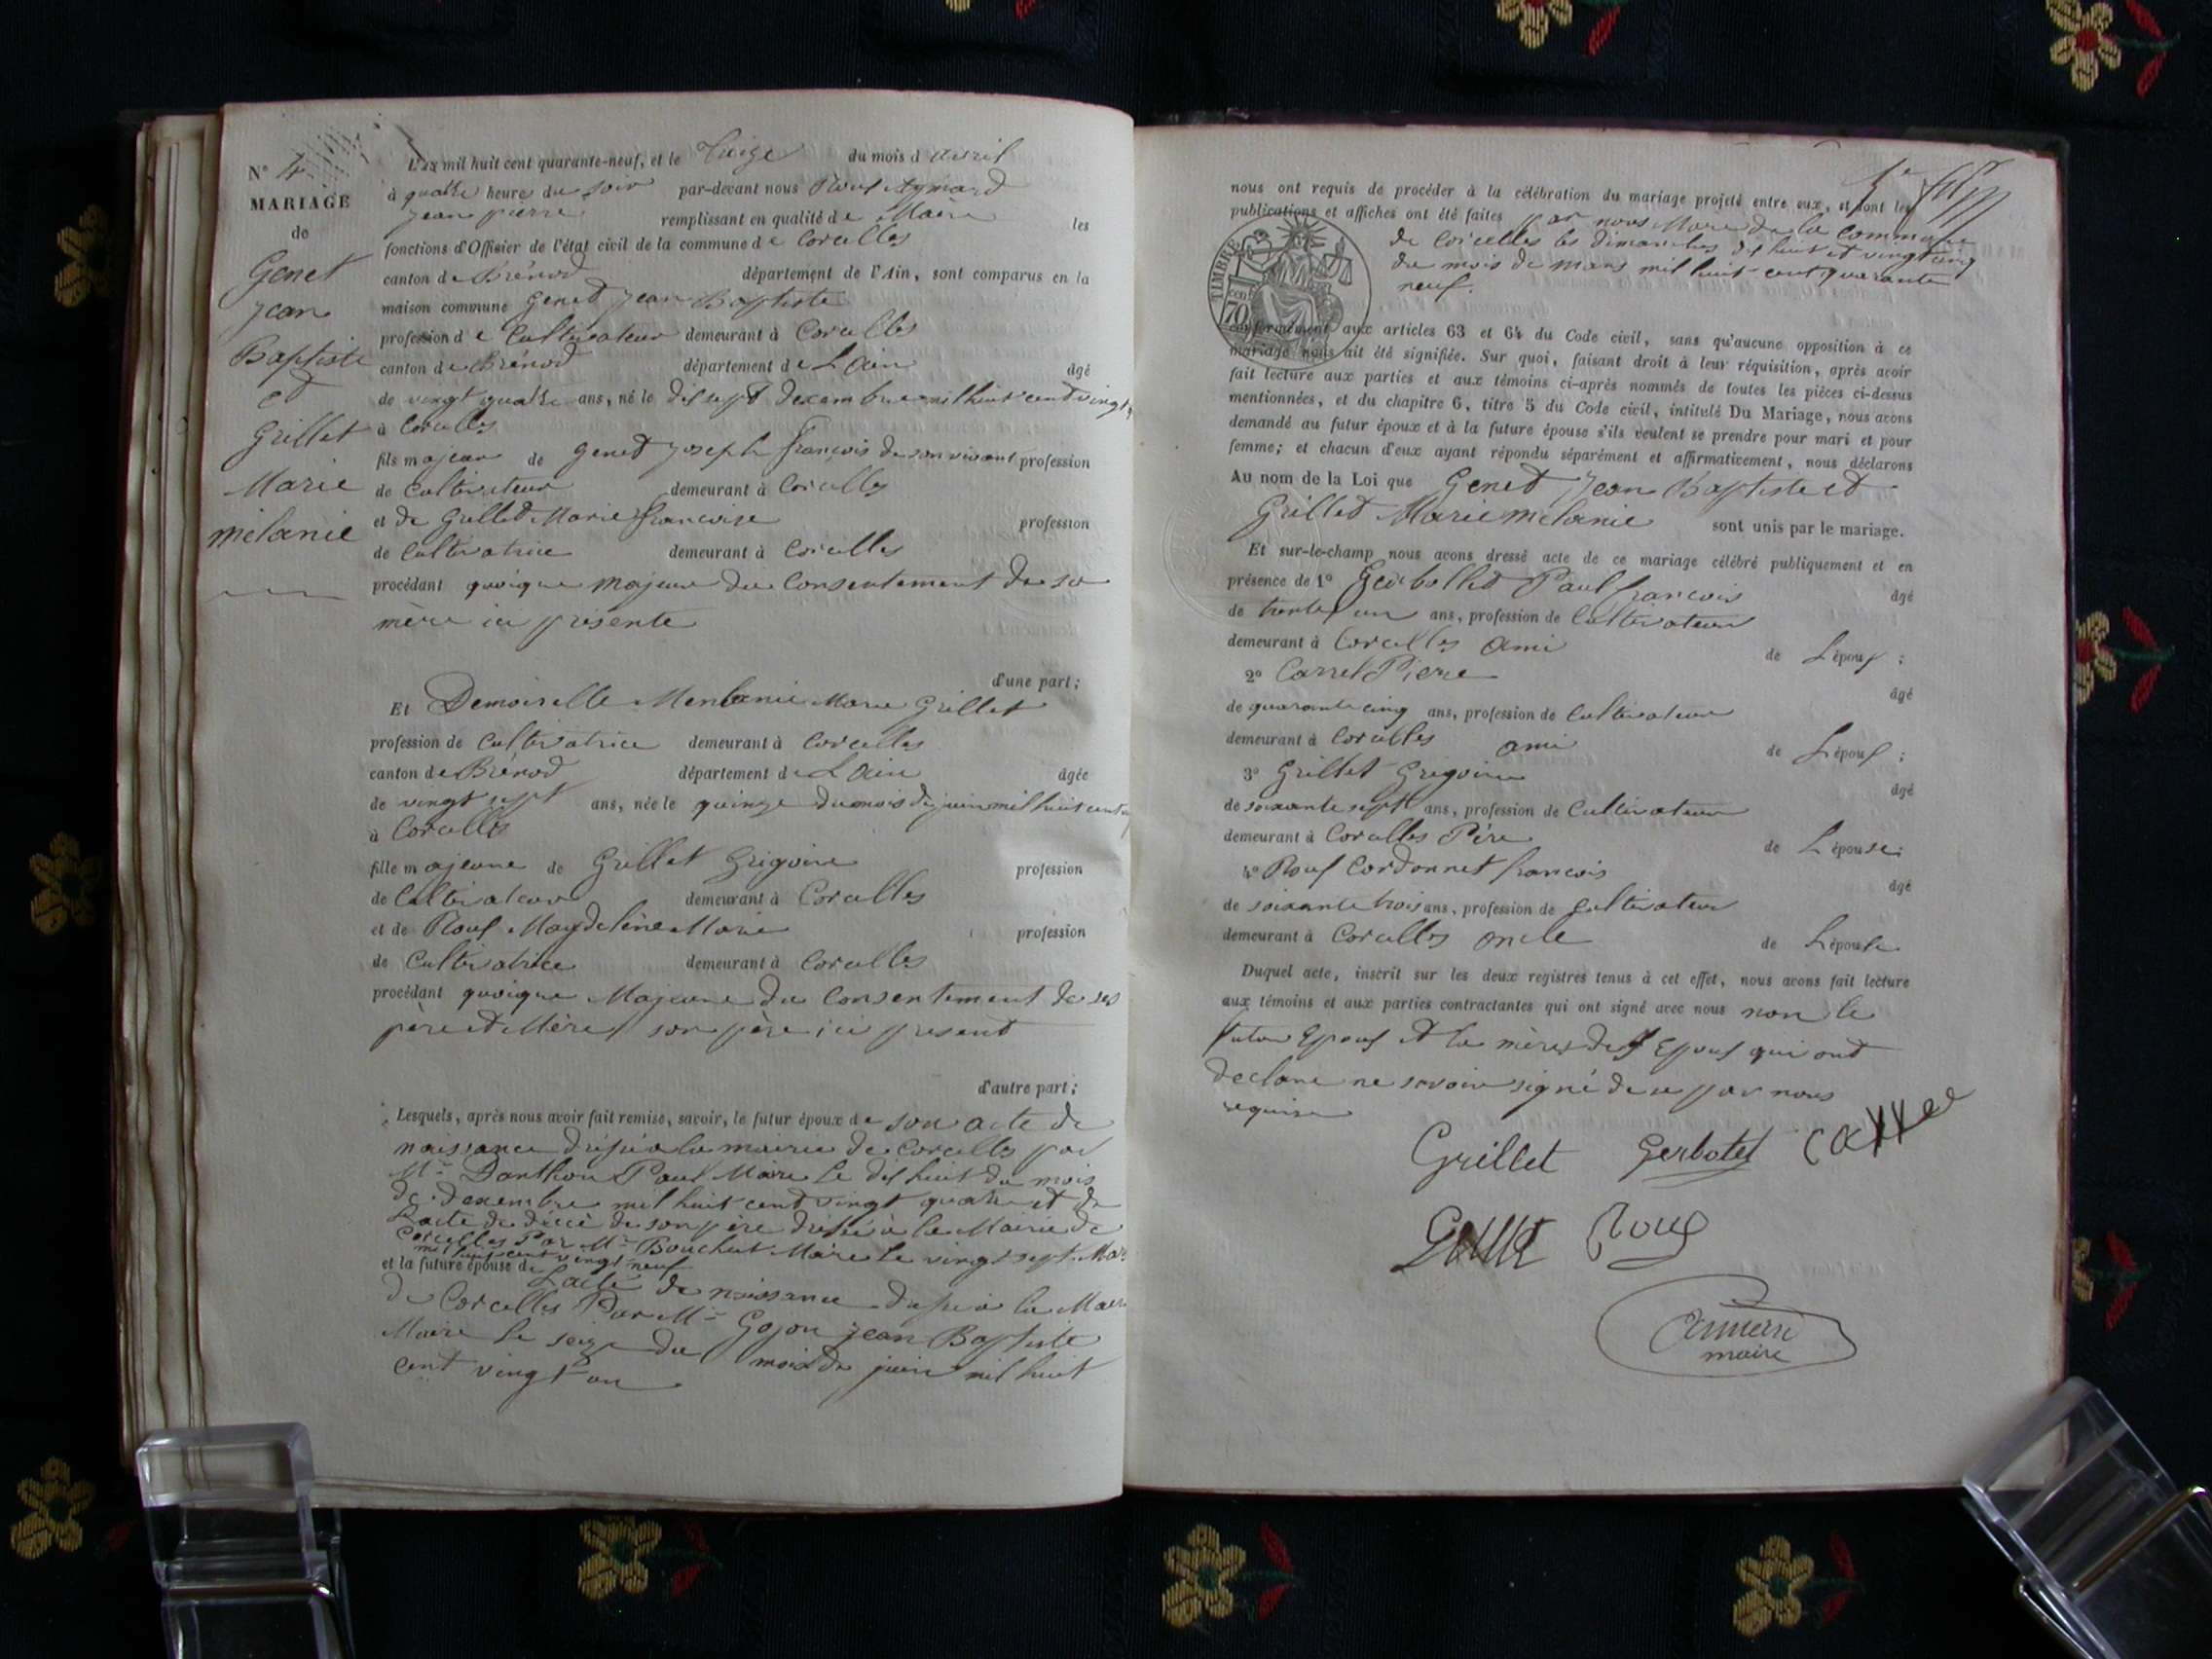 N° 4
MARIAGE
de
Genet
Jean
Baptiste
et
Grillet
Marie
mélanie
L'an mil huit cent quarante-neuf, et le du mois d avril
à quatre heure du soir par-devant nous Roux Aymard
Jean pierre remplissant en qualité de Maire les
fonctions d'Officier de l'état civil de la commune de Corcelles
canton de Brénod département de l'Ain, sont comparus en la
maison commune Genet Jean Baptiste
profession de Cultivateur demeurant à Corcelles
canton de Brénod département de L'ain âgé
de vingt quatre ans, né le dix sept dexembre mil huit cent vingt
à Corcelles
fils majeur de Genet Joseph françois de son vivant profession
de Cultivateur demeurant à Corcelles
et de Grillet Marie françoise profession
de Cultivatrice demeurant à Corcelles
procédant quoique majeur du Consentement de sa
mère ici présente
d'une part;
Et Demoiselle Menlanie Marie Grillet
profession de Cultivatrice demeurant à Corcelles
canton de Brénod département de L'ain âgée
de vingt sept ans, née le quinze du mois de juin mil huit cent
à Corcelles
fille majeure de Grillet Grigoire profession
de Cultivateur demeurant à Corcelles
et de Roux Magdeleine Marie profession
de Cultivatrice demeurant à Corcelles
procédant quoique Majeure du Consentement de ses
père et Mère son père ici present
d'autre part;
Lesquels, après nous avoir fait remise, savoir, le futur époux de son acte de
naissance à la mairie de Corcelles par
Mr Danthon Paul Maire Le dix huit du mois
de dexembre mil huit cent vingt quatre et de
L'acte de décè de son père à la Mairie de
Corcelles Par Mr Bouchut Maire Le vingt sept Mars
mil huit cent vingt neuf
et la future épouse de L'acte de naissance à la Mairie
de Corcelles Par Mr Gojon Jean Baptiste
Maire Le seize du mois de juin mil huit
cent vingt un
nous ont requis de procéder à la célébration du mariage projeté entre eux, et dont les
publications et affiches ont été faites par nous Maire de la commune
de Corcelles les dimanches dix huit et vingt cinq
du mois de mars mil huit cent quarante
neuf.
TIMBRE
70 cent
conformément aux articles 63 et 64 du Code civil, sans qu'aucune opposition à ce
mariage nous ait été signifiée. Sur quoi, faisant droit à leur réquisition, après avoir
fait lecture aux parties et aux témoins ci-après nommés de toutes les pièces ci-dessus
mentionnées, et du chapitre 6, titre 5 du Code civil, intitulé Du Mariage, nous avons
demandé au futur époux et à la future épouse s'ils veulent se prendre pour mari et pour
femme; et chacun d'eux ayant répondu séparément et affirmativement, nous déclarons
Au nom de la Loi que Genet Jean Baptiste et
Grillet Marie mélanie sont unis par le mariage.
Et sur-le-champ nous avons dressé acte de ce mariage célébré publiquement et en
présence de 1° Paul françois âgé
de trente un ans, profession de Cultivateur
demeurant à Corcelles ami de L'époux;
2° Carrel Piere âgé
de quarante cinq ans, profession de Cultivateur
demeurant à Corcelles ami de L'époux;
3° Grillet Grigoire âgé
de soixante sept ans, profession de Cultivateur
demeurant à Corcelles Père de L'épouse;
4° Roux Cordonnet françois âgé
de soixante trois ans, profession de Cultivateur
demeurant à Corcelles oncle de L'épouse
Duquel acte, inscrit sur les deux registres tenus à cet effet, nous avons fait lecture
aux témoins et aux parties contractantes qui ont signé avec nous non le
futur Epoux et la mère de Epoux qui ont
declare ne savoir signé de ce par nous
requise
Grillet Gerbotet carrel
Grillet Roux
maire